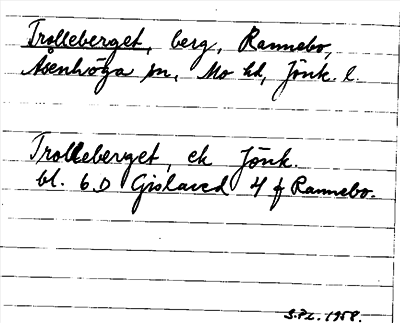 Trolleberget, berg, Rannebo,
Åsenhöga sn, Mo hd, Jönk. l.
Trolleberget, ek Jönk.
bl. 6 D Gislaved 4 f Rannebo.
S.P.L. 1958.